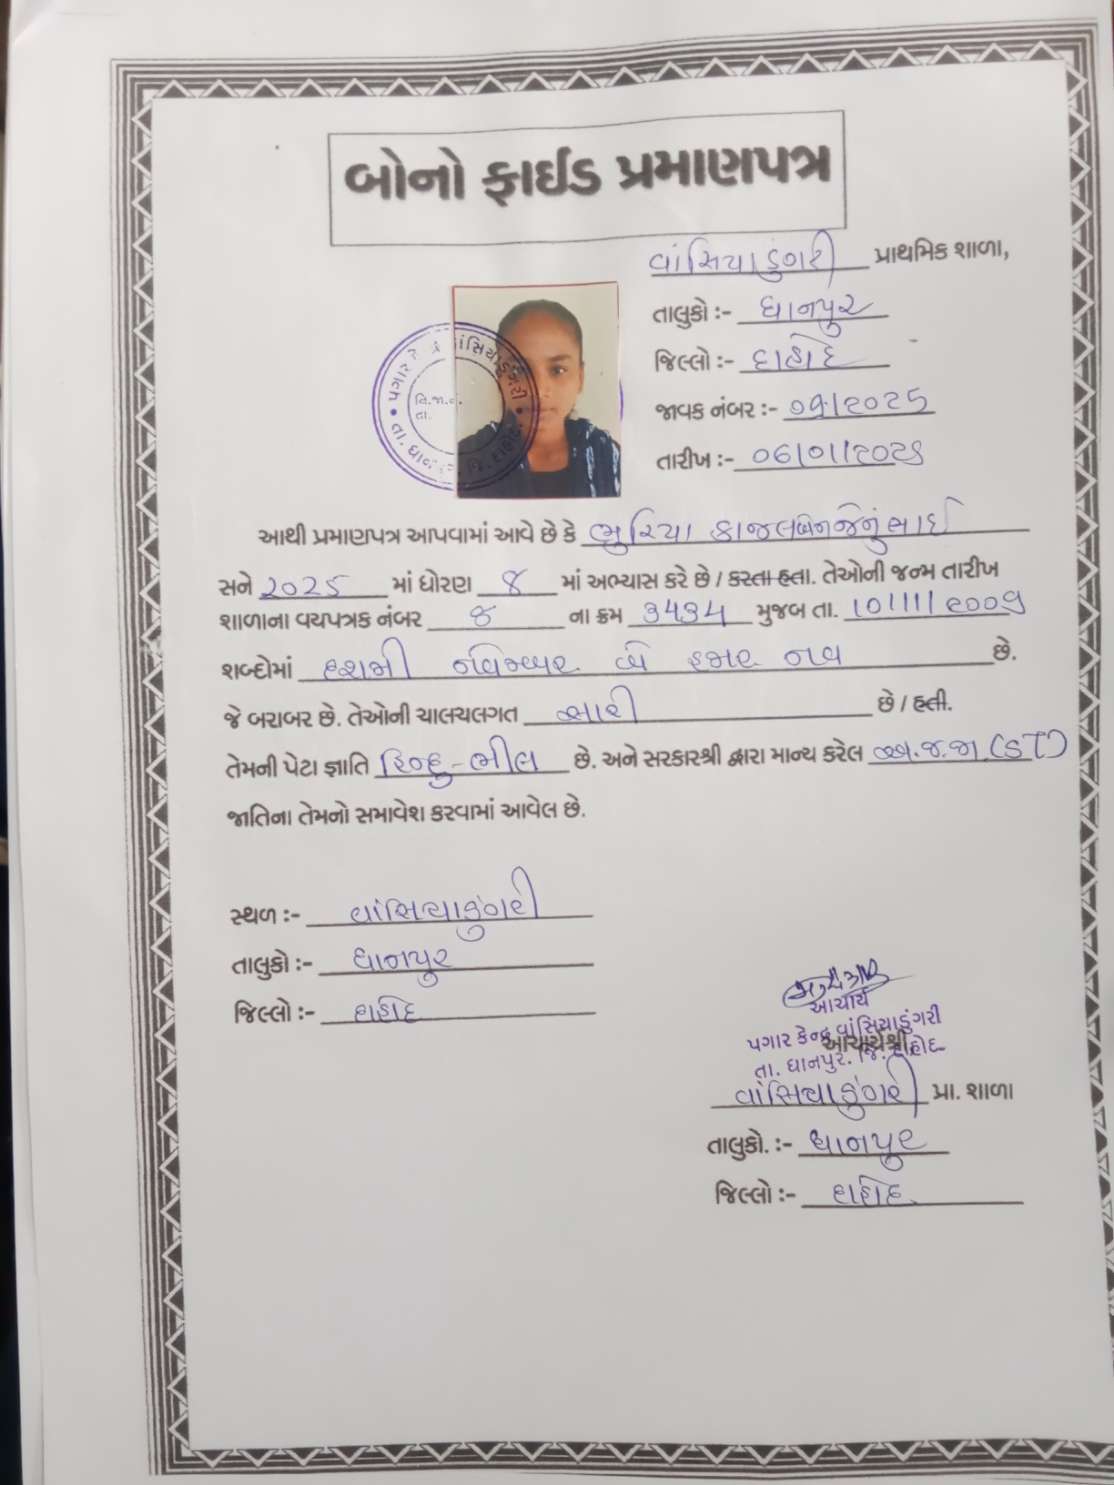 બોનો ફાઈડ પ્રમાણપત્ર
વાંસિયાડુંગરી પ્રાથમિક શાળા,
તાલુકો :- ધાનપુર
જિલ્લો :- દાહોદ
જાવક નંબર :- ૦૧/૨૦૨૫
તારીખ :- ૦૬/૦૧/૨૦૨૬
પગાર કે વાંસિયાડુંગરી
વિ.જા.નં.
તા.
તા. ધાન જિ. દાહોદ
આથી પ્રમાણપત્ર આપવામાં આવે છે કે ભુરિયા કાજલબેન જેનુંભાઈ
સને ૨૦૨૫ માં ધોરણ ૪ માં અભ્યાસ કરે છે / કરતા હતા. તેઓની જન્મ તારીખ
શાળાના વયપત્રક નંબર ૪ ના ક્રમ ૩૫૩૫ મુજબ તા. ૧૦/૧૧/૨૦૦૯
શબ્દોમાં દશમી નવેમ્બર બે હજાર નવ છે.
જે બરાબર છે. તેઓની ચાલચલગત સારી છે / હતી.
તેમની પેટા જ્ઞાતિ હિન્દુ-ભીલ છે. અને સરકારશ્રી દ્વારા માન્ય કરેલ અ.જ.જા.(ST)
જાતિના તેમનો સમાવેશ કરવામાં આવેલ છે.
સ્થળ :- વાંસિયાડુંગરી
તાલુકો :- ધાનપુર
જિલ્લો :- દાહોદ
આચાર્ય
પગાર કેન્દ્ર વાંસિયાડુંગરી
આચાર્યશ્રી,
તા. ધાનપુર. જિ. દાહોદ
વાંસિયાડુંગરી પ્રા. શાળા
તાલુકો. :- ધાનપુર
જિલ્લો :- દાહોદ